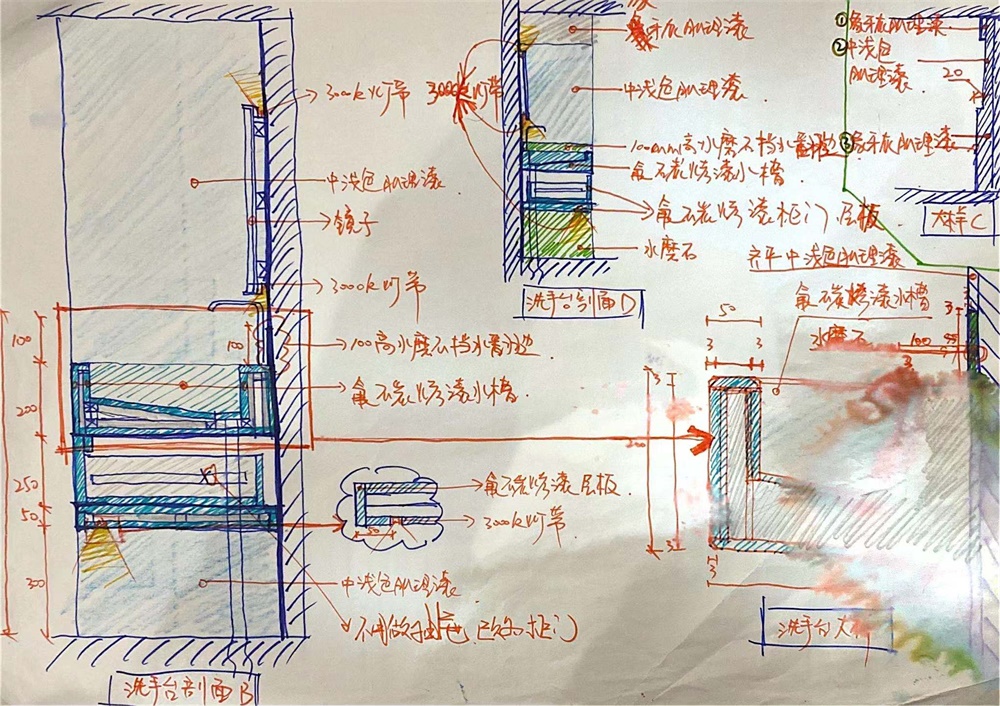 3000k灯带
中浅色肌理漆
镜子
3000k灯带
100高水磨石挡水翻边
氟碳烤漆水槽
100
100
200
250
50
300
氟碳烤漆层板
3000k灯带
50
中浅色肌理漆
不用做抽屉 改为柜门
洗手台剖面B
象牙灰肌理漆
3000k灯带
中浅色肌理漆
100mm高水磨石挡水翻边
氟碳烤漆水槽
氟碳烤漆柜门.层板
水磨石
洗手台剖面D
①象牙灰肌理漆
②中浅色
肌理漆
20
③象牙灰肌理漆
大样C
齐平中浅色肌理漆
氟碳烤漆水槽
水磨石
50
3
3
3
100
3
3
200
3
3
洗手台大